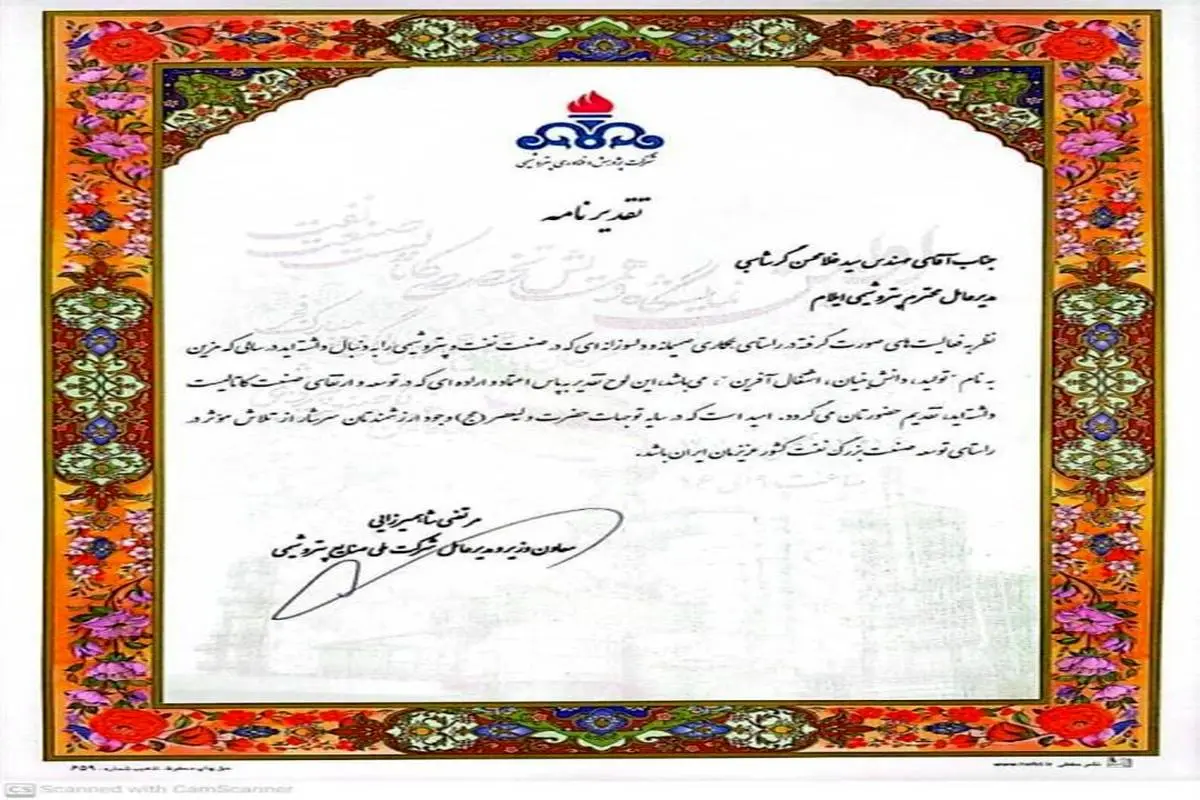 شرکت پژوهش و فناوری پتروشیمی
تقدیرنامه
جناب آقای مهندس سید غلامحسن گرشاسبی
مدیرعامل محترم پتروشیمی ایلام
نظر به فعالیت‌های صورت گرفته در راستای همکاری صمیمانه و دلسوزانه ای که در صنعت نفت و پتروشیمی را به دنبال داشته‌اید در سالی که مزین
به نام "تولید، دانش بنیان، اشتغال آفرین"، می باشد، این لوح تقدیر به پاس اعتماد و اراده ای که در توسعه و ارتقای صنعت کاتالیست
داشته‌اید، تقدیم حضورتان می گردد. امید است که در سایه توجهات حضرت ولیعصر (عج) وجود ارزشمندتان سرشار از تلاش مؤثر در
راستای توسعه صنعت بزرگ نفت کشور عزیزمان ایران باشد.
ساعت ۹ الی ۱۶
مرتضی شاهمیرزایی
معاون وزیر و مدیرعامل شرکت ملی صنایع پتروشیمی
حق چاپ محفوظ. تذهیب شماره: ۶۵۹
CS Scanned with CamScanner